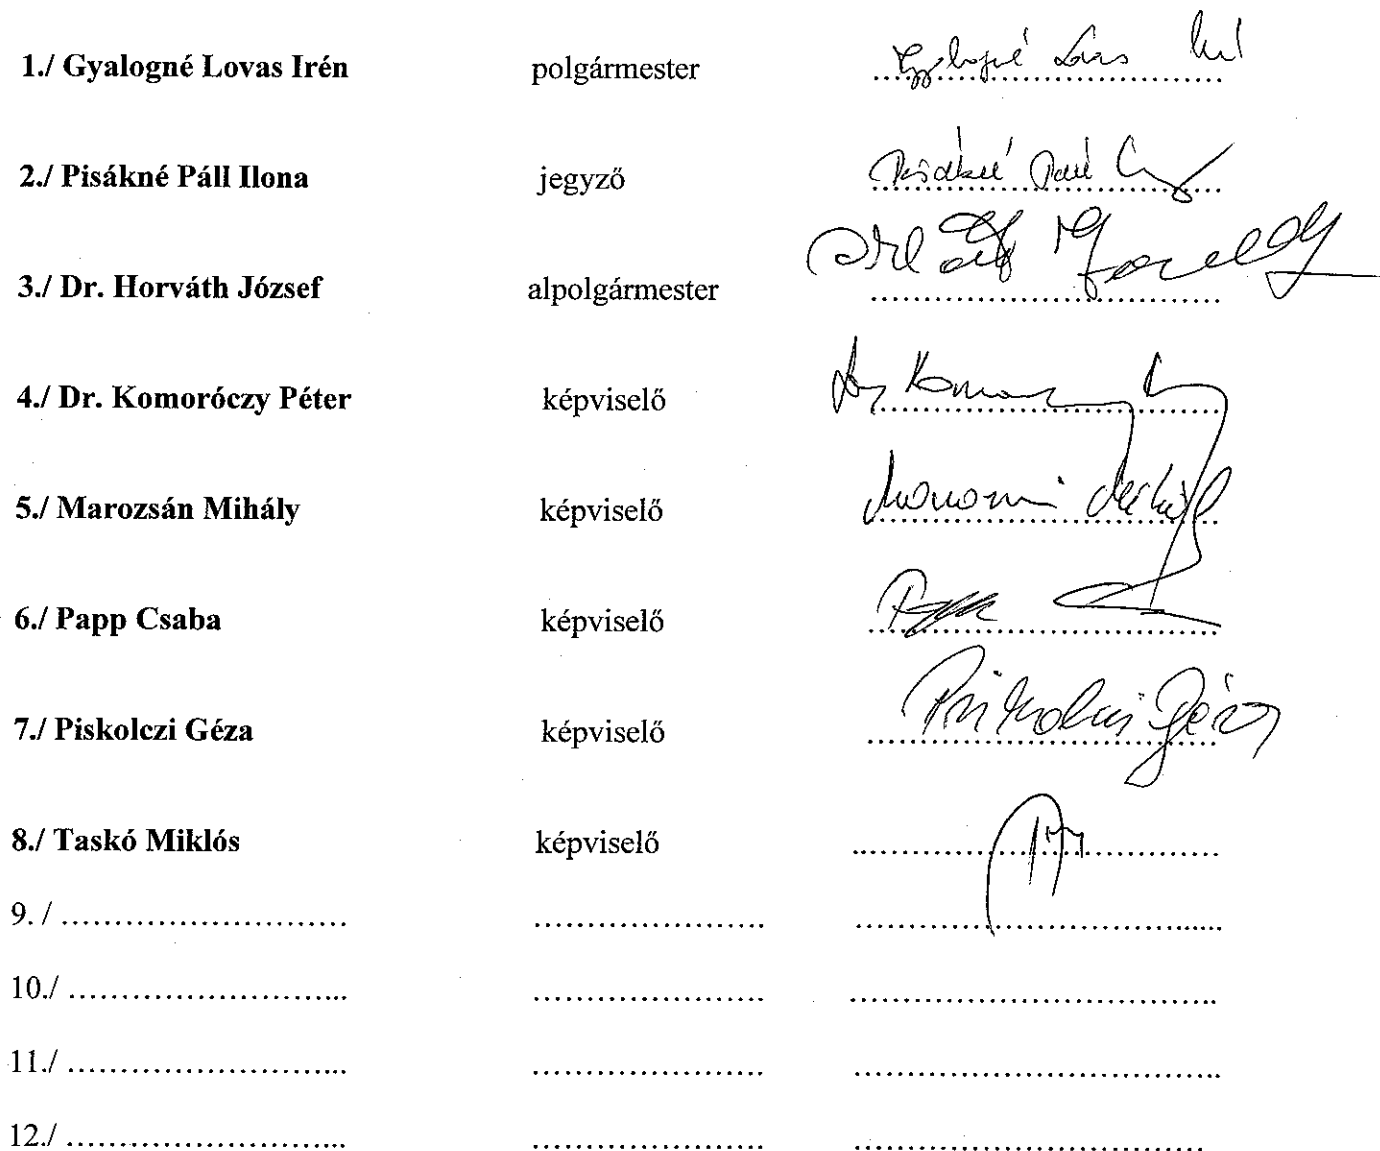 1./ Gyalogné Lovas Irén polgármester Gyalogné Lovas Irén
2./ Pisákné Páll Ilona jegyző Pisákné Páll
3./ Dr. Horváth József alpolgármester
4./ Dr. Komoróczy Péter képviselő
5./ Marozsán Mihály képviselő Mihály
6./ Papp Csaba képviselő Papp
7./ Piskolczi Géza képviselő Piskolczi Géza
8./ Taskó Miklós képviselő
9. / ............................ ....................... .....................................
10./ ............................ ....................... .....................................
11./ ............................ ....................... .....................................
12./ ............................ ....................... .....................................